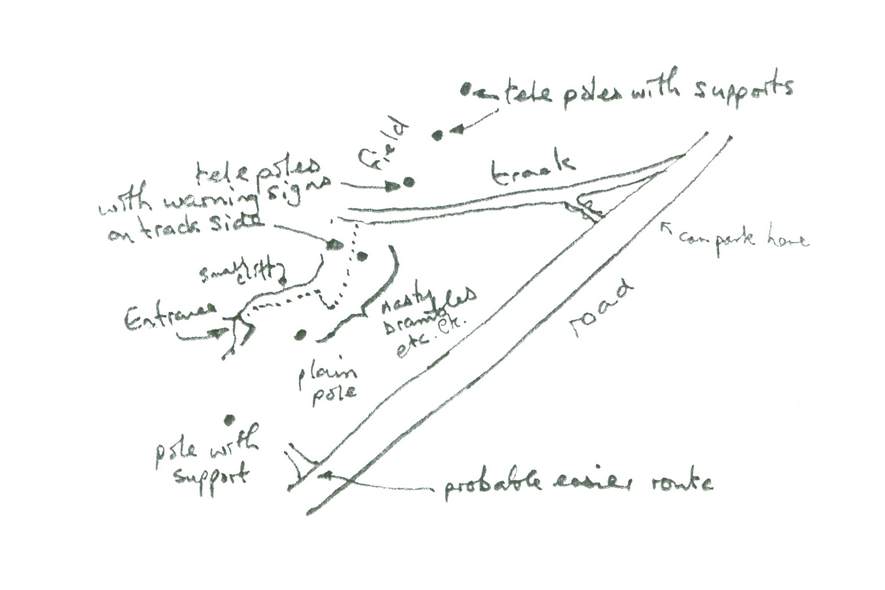 tele poles with supports
field
track
tele poles
with warning signs
on track side
can park here
small cliff
Entrance
nasty
brambles
etc. etc.
road
plain
pole
pole with
support
probable easier route